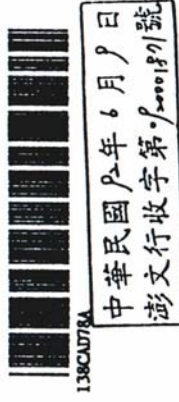 138CAD78A
中華民國92年6月9日
澎文行收字第·920001891號